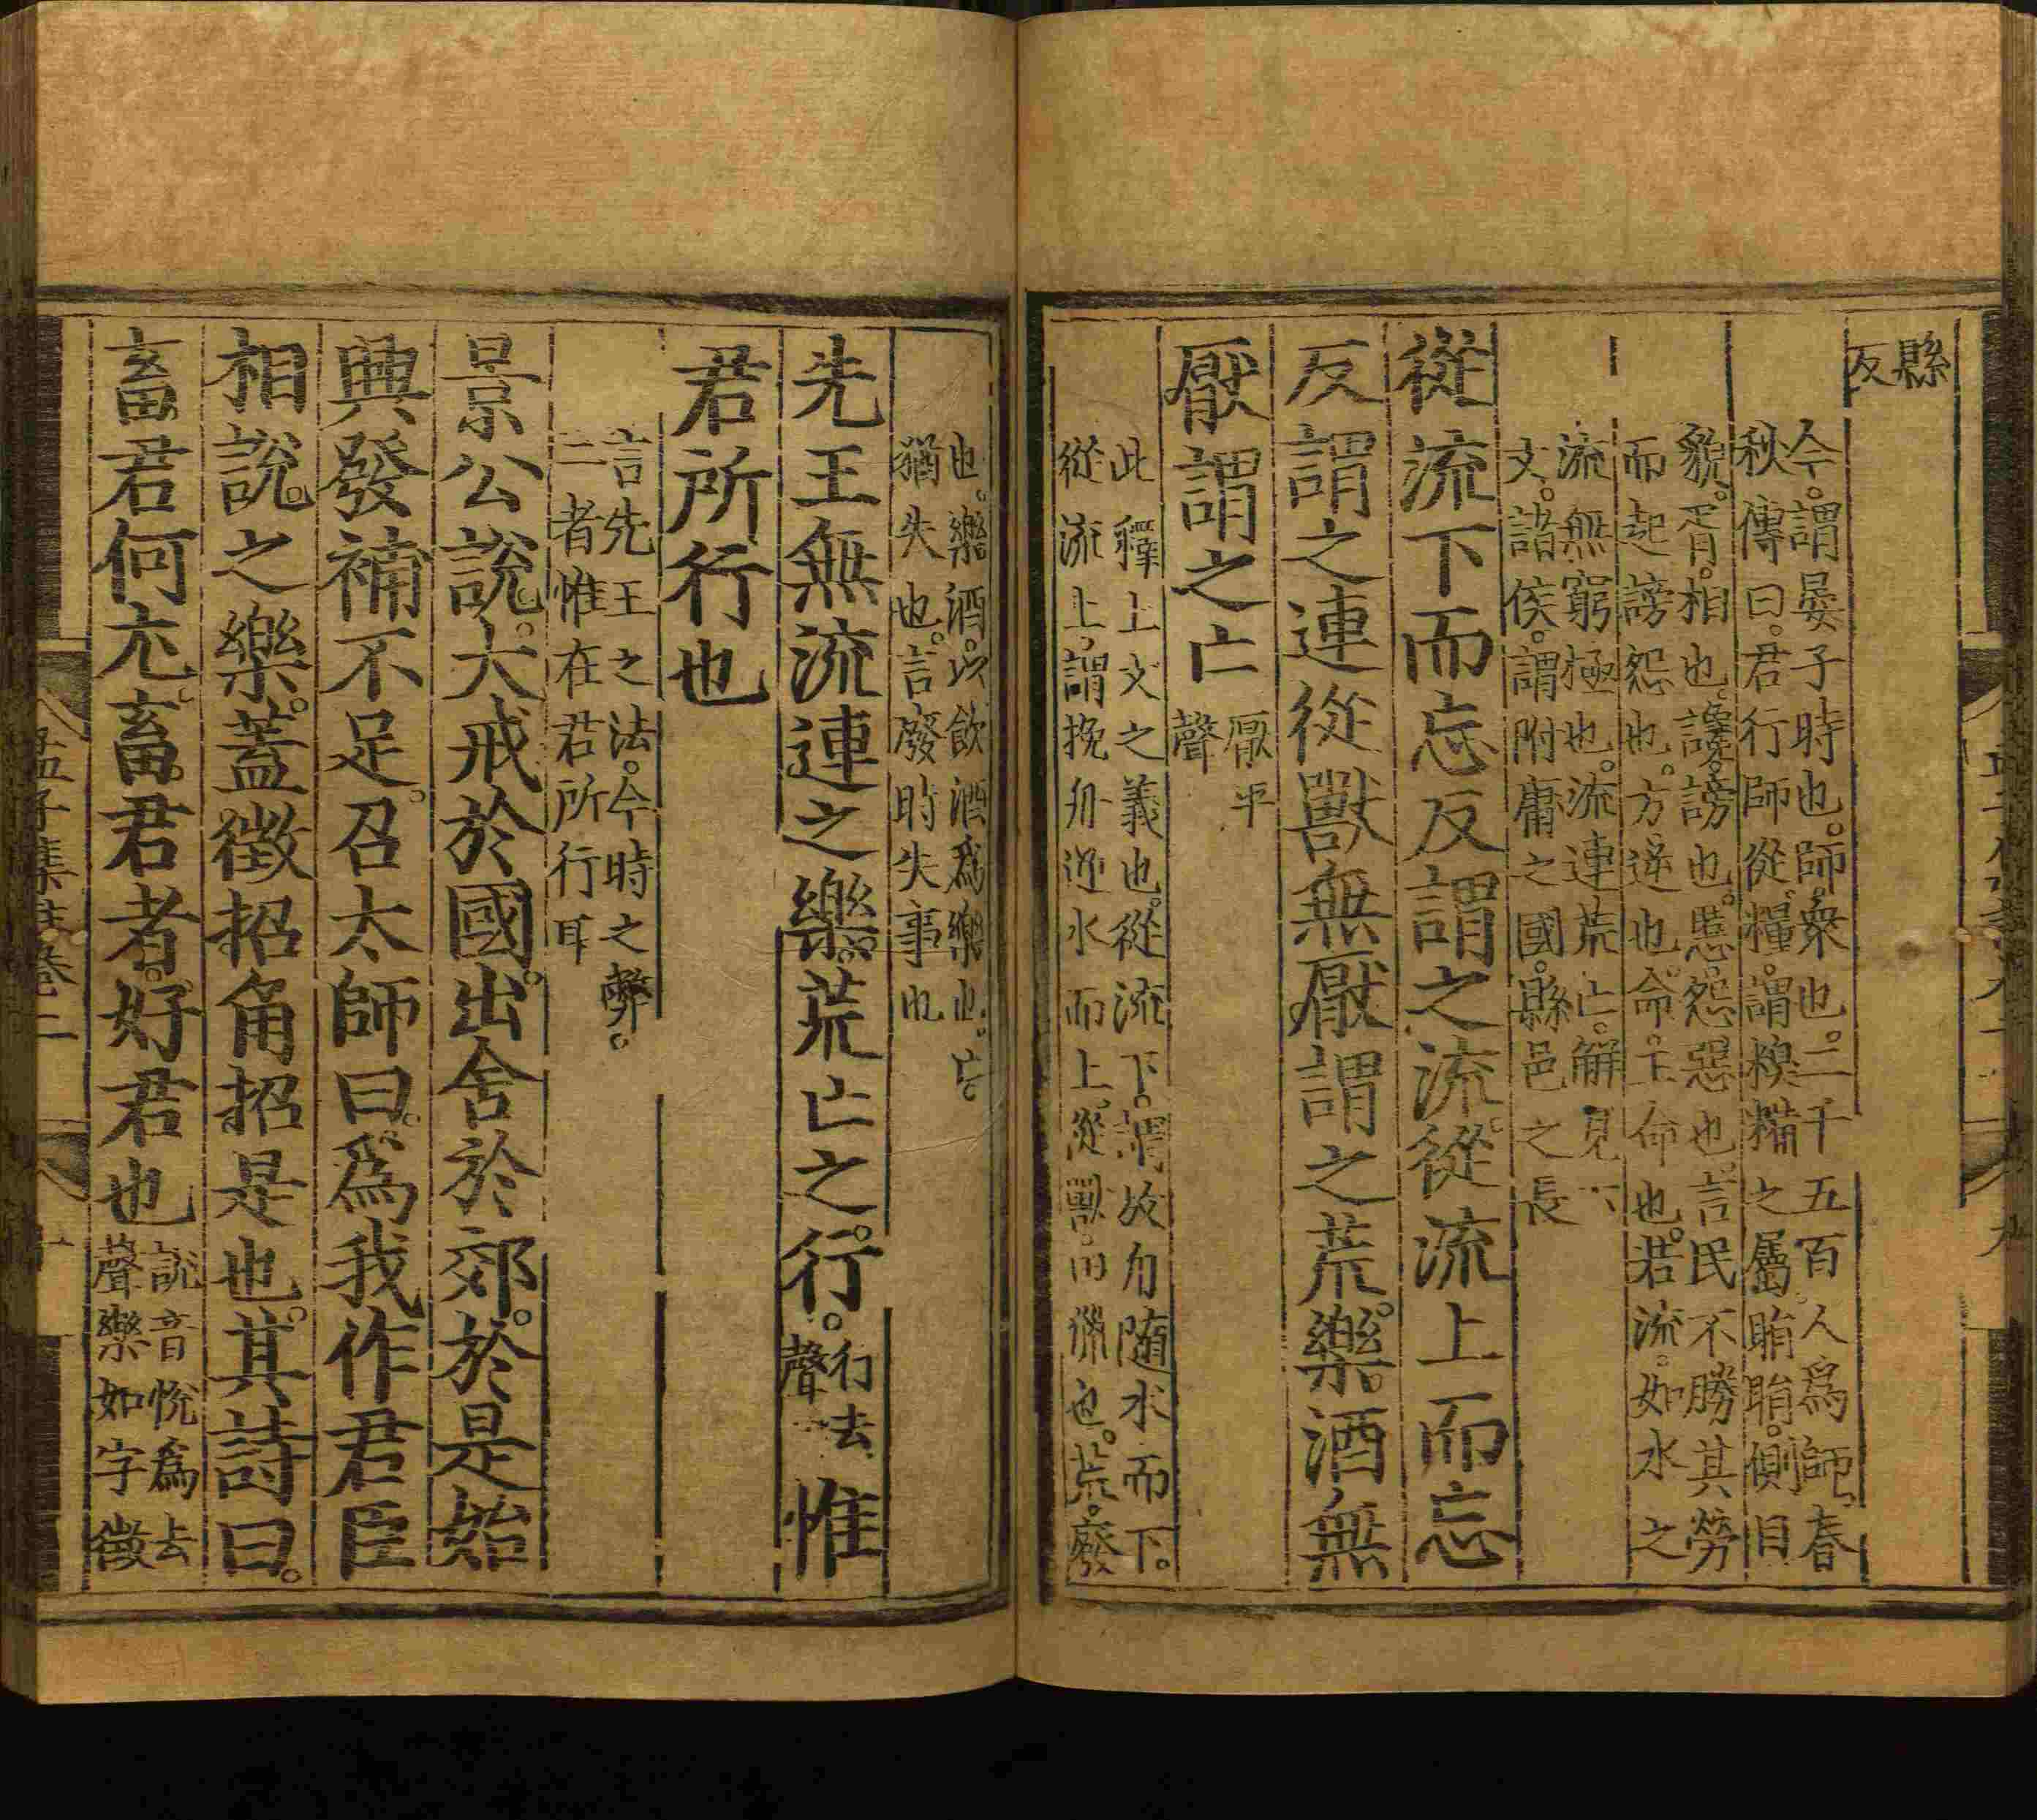 縣
反
今。謂晏子時也。師。衆也。二千五百人爲師。春
秋傳曰。君行師從。糧。謂糗糒之屬。睊睊。側目
貌。胥。相也。讒。謗也。慝。怨惡也。言民不勝其勞
而起謗怨也。方。逆也。命。王命也。若流。如水之
流無窮極也。流連荒亡。解見下
文。諸侯。謂附庸之國。縣邑之長
從流下而忘反謂之流。從流上而忘
反謂之連從獸無厭謂之荒。樂。酒無
厭謂之亡
厭平
聲
此釋上文之義也。從流下。謂放舟隨水而下。
從流上。謂挽舟逆水而上。從獸。田獵也。荒。廢
也。樂酒。以飲酒爲樂也。亡。
猶失也。言廢時失事也
先王無流連之樂。荒亡之行。
行去
聲
惟
君所行也
言先王之法。今時之弊。
二者惟在君所行耳
景公說。大戒於國。出舍於郊。於是始
興發補不足。召太師曰。爲我作君臣
相說。之樂。蓋徵招角招是也。其詩曰。
畜君何尤。畜。君者。好君也
說音悅爲去
聲樂如字徵
孟子集註卷二